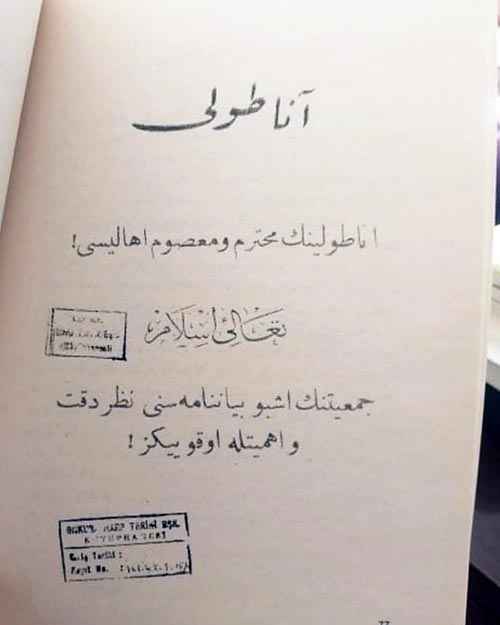 آناطولی
اناطولینك محترم ومعصوم اهالیسی!
تعالیٔ اسلام
جمعیتنك اشبو بیاننامه‌سنی نظردقت
واهمیتله اوقویيكز!
GNKUR. HARP TARİHİ BŞK.
KÜTÜPHANESİ
Geliş Tarihi :
Kayıt No. :
77